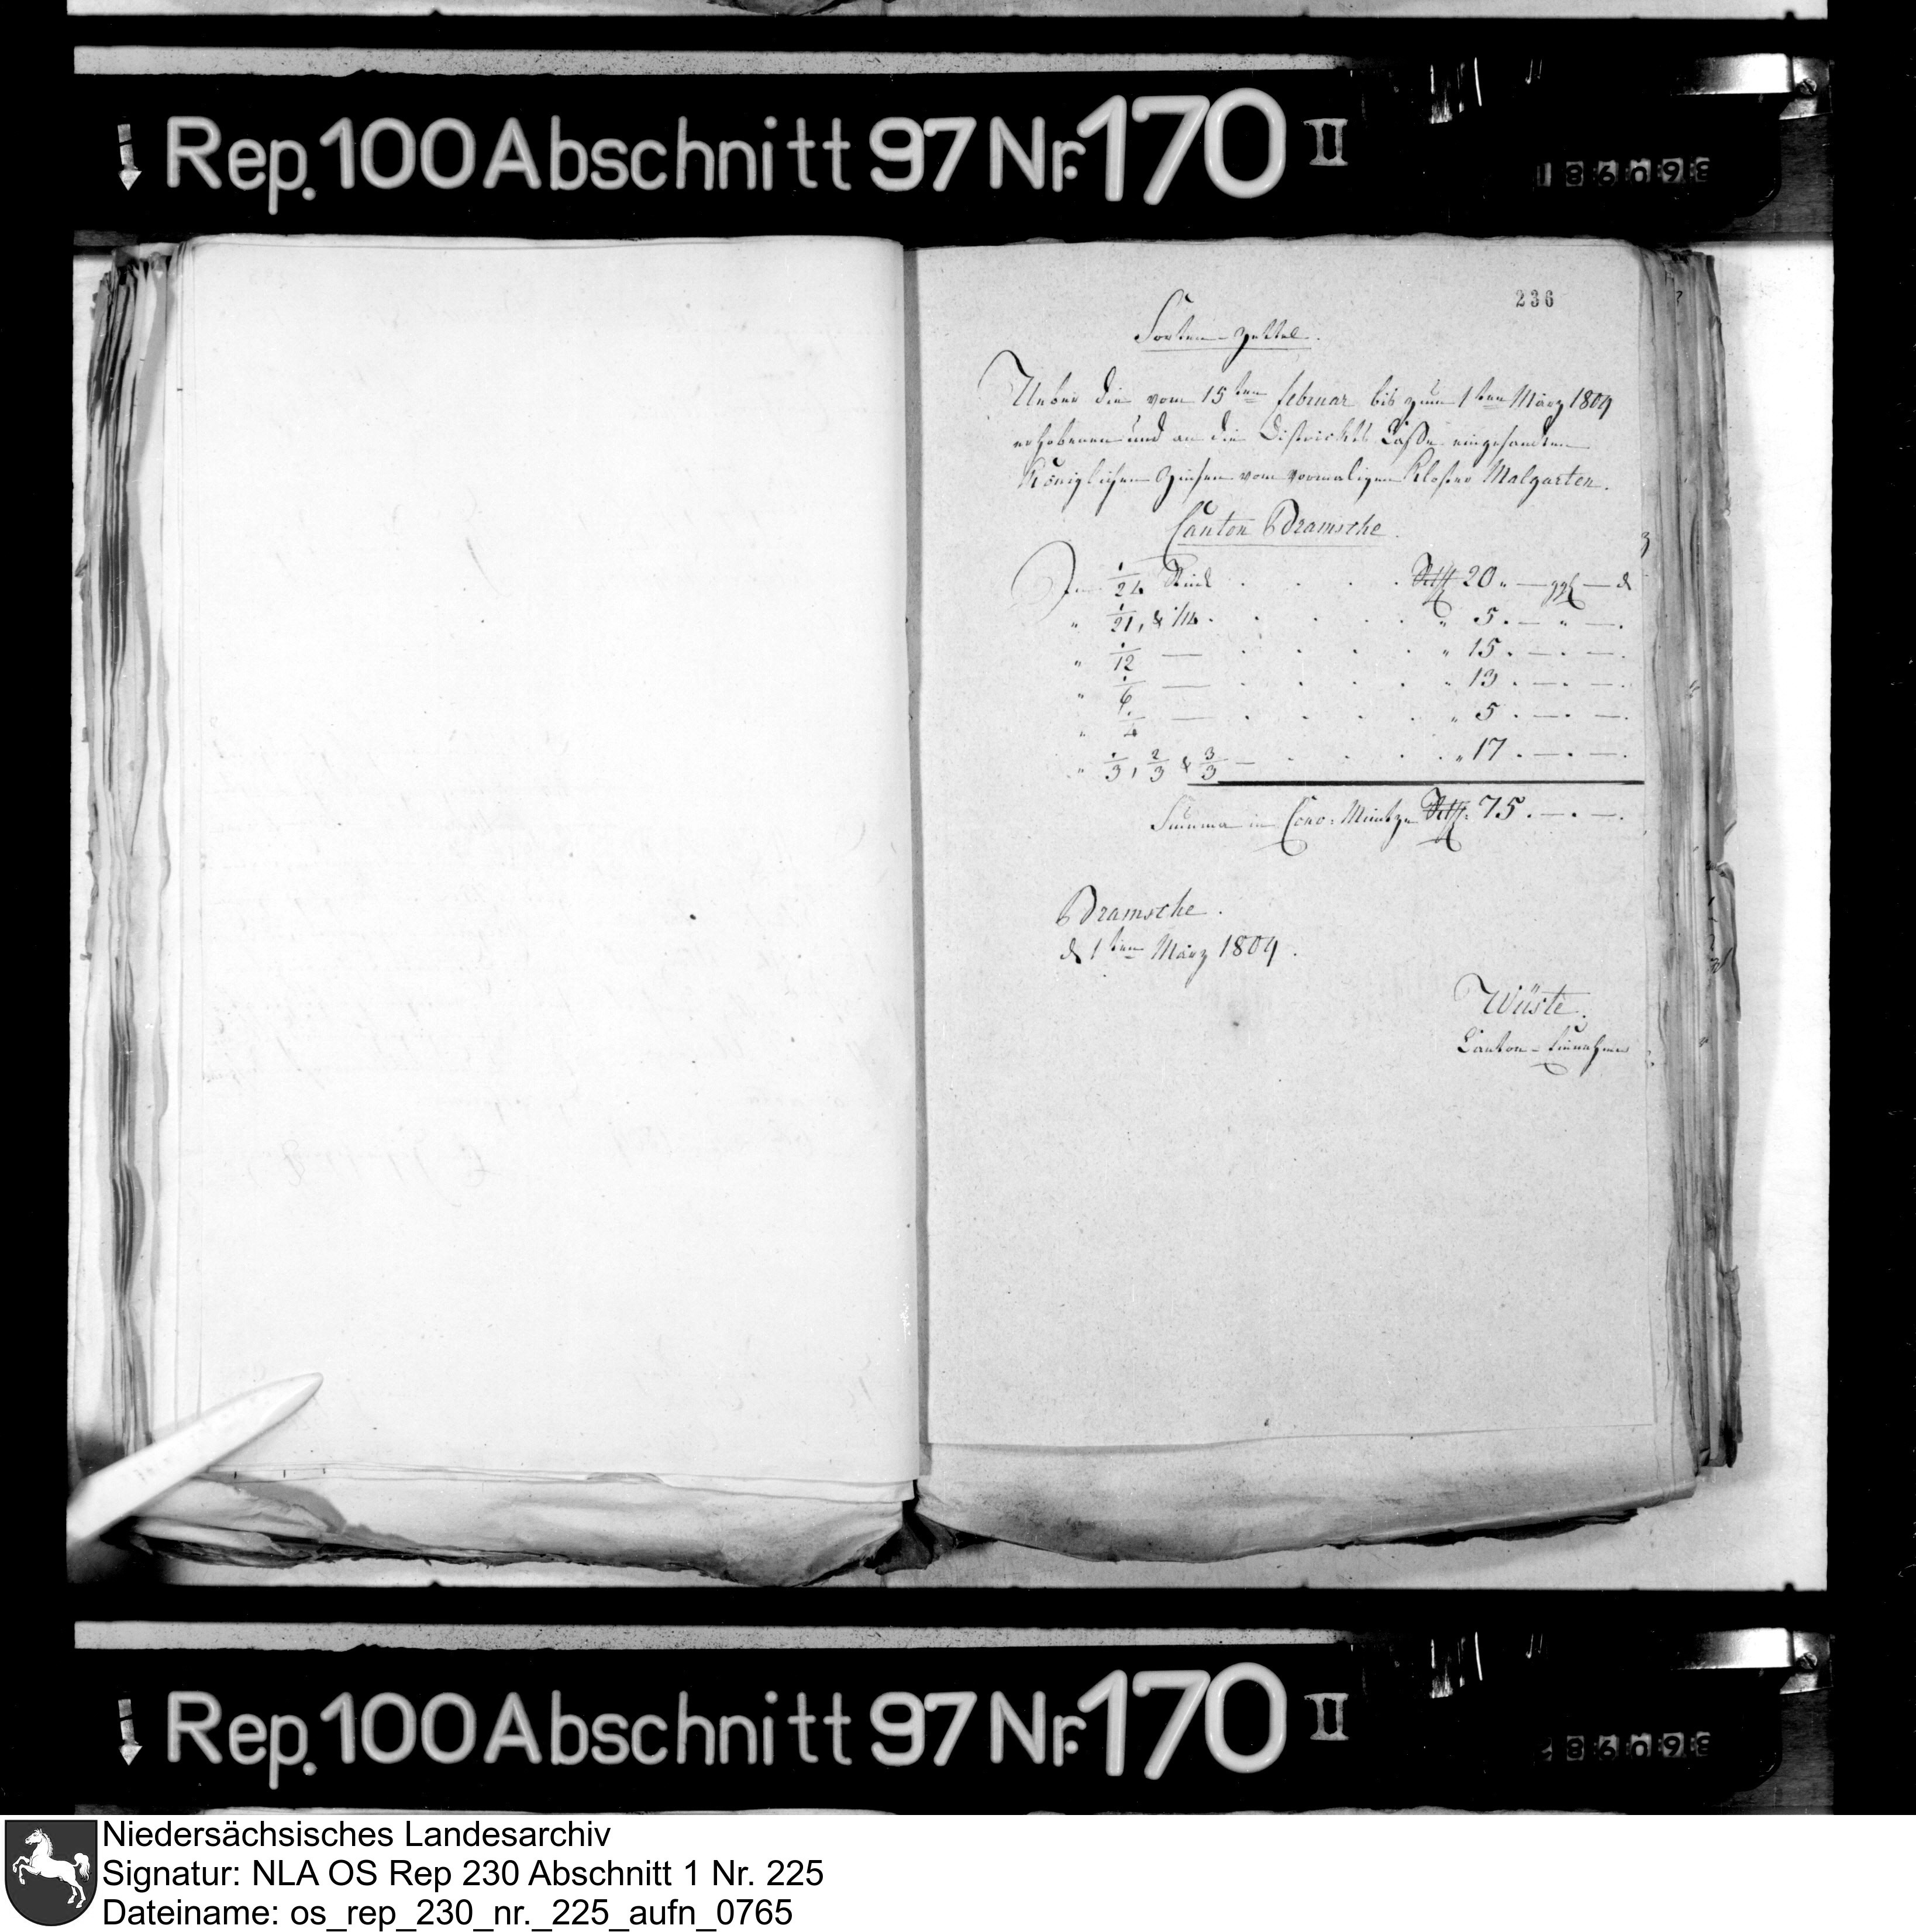 Rep. 100 Abschnitt 97 Nr. 170 II
186098
236
Sorten-Zettel.
Ueber die vom 15ten februar bis zum 1ten März 1809
erhobenen und an die Districkts Casse eingesandten
Königlichen Zinsen vom vormaligen Kloster Malgarten.
Canton Bramsche.
In 1/24 Stück . . . . Rthlr 20 " — ggl — d
" 1/21, & 1/14 . . . . . " 5 . — " — .
" 1/12 — . . . . " 15 . — . — .
" 1/6 — . . . . " 13 . — . — .
" 1/4 — . . . . " 5 . — . — .
" 1/3, 2/3 & 3/3 — . . . . " 17 . — . — .
Summa in Conv: Müntze Rthlr: 75 . — . — .
Bramsche.
d 1ten März 1809.
Wüste.
Canton-Einnehmer
Rep. 100 Abschnitt 97 Nr. 170 II
86098
Niedersächsisches Landesarchiv
Signatur: NLA OS Rep 230 Abschnitt 1 Nr. 225
Dateiname: os_rep_230_nr._225_aufn_0765